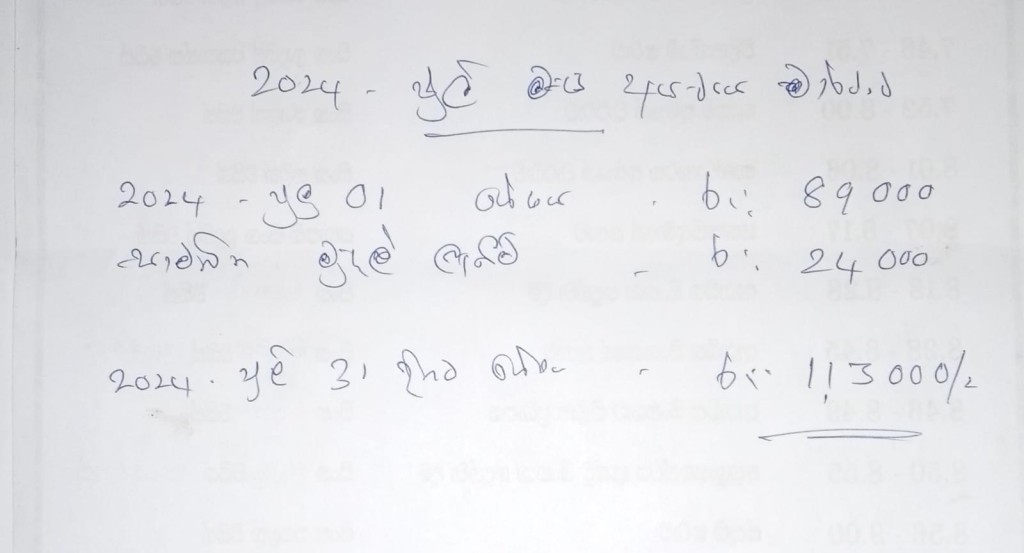 2024 - ජූලි මාසය අය-වැය වාර්තාව
2024 - ජූලි 01 ශේෂය - රු: 89 000
සාමාජික මුදල් ලැබීම් - රු: 24 000
2024 - ජූලි 31 දිනට ශේෂය - රු: 113 000/=